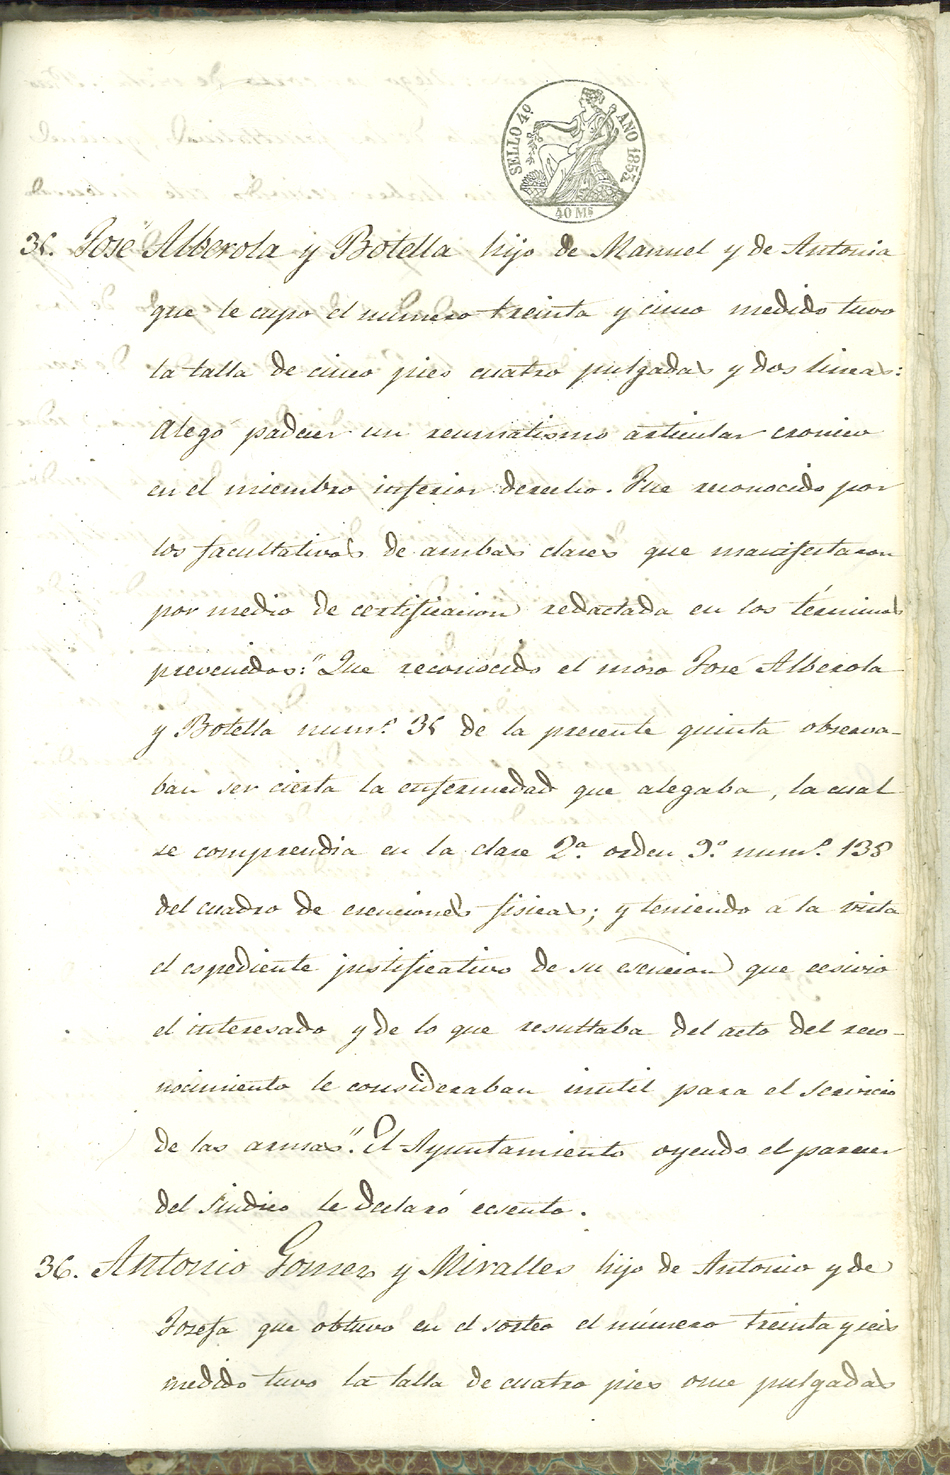 SELLO 4º AÑO 1853.
40 Ms
35. José Alberola y Botella hijo de Manuel y de Antonia
que le cupo el número treinta y cinco medido tuvo
la talla de cinco pies cuatro pulgadas y dos lineas:
Alego padecer un reumatismo articular cronico
en el miembro inferior derecho. Fue reconocido por
los facultativos de ambas clases que manifestaron
por medio de certificacion redactada en los términos
prevenidos: "Que reconocido el moso José Alberola
y Botella numº 35 de la presente quinta observa-
ban ser cierta la enfermedad que alegaba, la cual
se comprendia en la clase 2ª orden 9º numº 135
del cuadro de esenciones fisicas; y teniendo á la vista
el espediente justificativo de su esencion que ecsivio
el interesado y de lo que resultaba del acto del reco-
nocimiento le consideraban inutil para el servicio
de las armas". El Ayuntamiento oyendo el parecer
del Sindico le declaró ecsento.
36. Antonio Gomez y Miralles hijo de Antonio y de
Josefa que obtuvo en el sorteo el número treinta y seis
medido tuvo la talla de cuatro pies once pulgadas